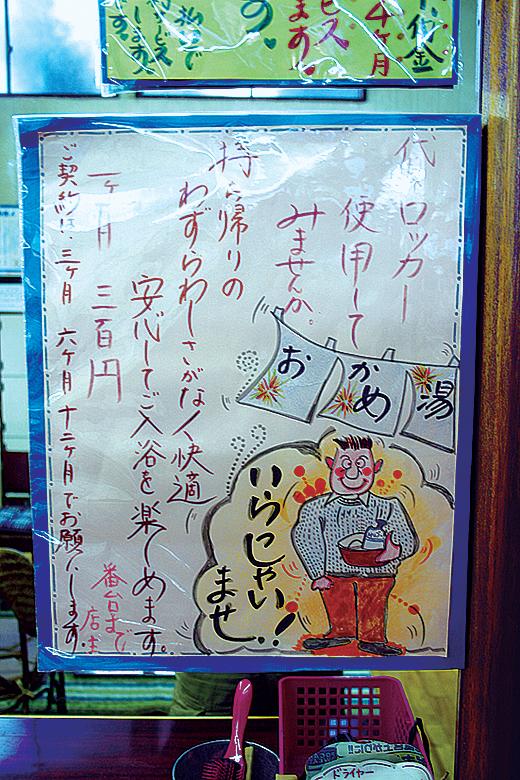 代金
4ヶ月
ビス
ます。
す。
ロッカー
使用して
みませんか。
持ち帰りの
わずらわしさがなく快適
安心してご入浴を楽しめます。
一ヶ月 三百円
ご契約は、三ヶ月 六ヶ月 十二ヶ月でお願いします。
番台まで
店主
お かめ 湯
いらっしゃい!
ませ
ドライヤー